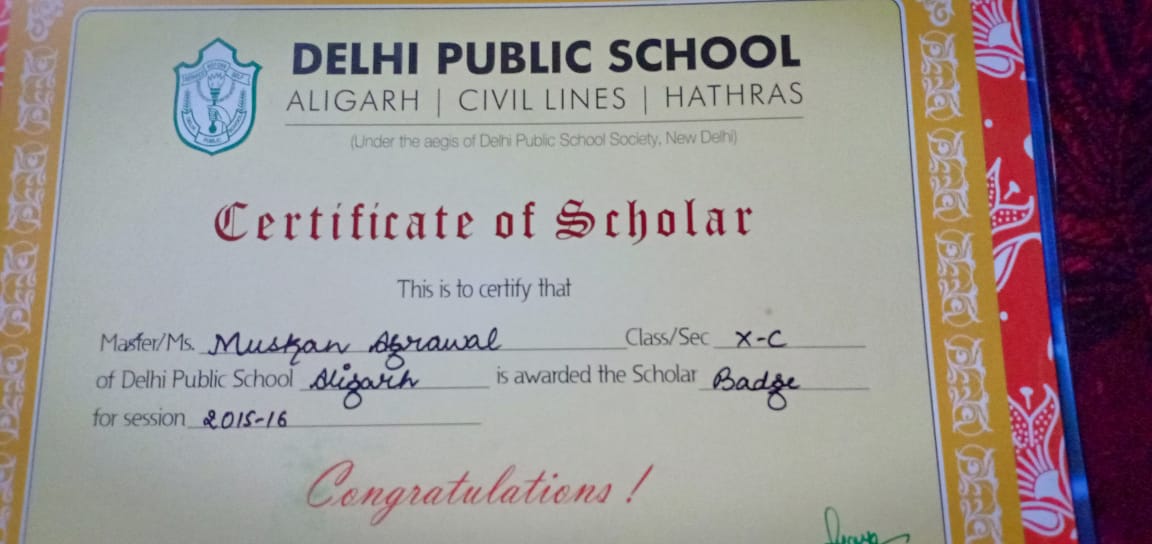 DELHI PUBLIC SCHOOL
ALIGARH | CIVIL LINES | HATHRAS
(Under the aegis of Delhi Public School Society, New Delhi)
Certificate of Scholar
This is to certify that
Master/Ms. Muskan Agrawal Class/Sec X-C
of Delhi Public School Aligarh is awarded the Scholar Badge
for session 2015-16
Congratulations !